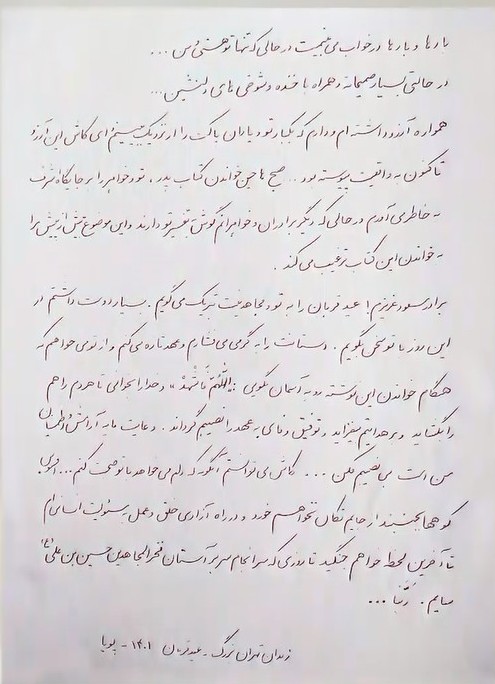 بارها و بارها در خواب می‌بینمت در حالی که تنها تو هستی و من ...
در حالتی بسیار صمیمانه و همراه با خنده و شوخی های دلنشین...
همواره آرزو داشته ام و دارم که یکبار تو و یاران پاکت را از نزدیک ببینم ای کاش این آرزو
تاکنون به واقعیت پیوسته بود .. صبح ها حین خواندن کتاب پدر، تو و خواهرم را بر جایگاه اشرف
به خاطر می آورم در حالی که دیگر برادران و خواهرانم گوش به تفسیر تو دارند و این موضوع بیش از پیش مرا
به خواندن این کتاب ترغیب می کند.
برادر مسعود عزیزم! عید قربان را به تو و مجاهدینت تبریک می گویم. بسیار دوست داشتم در
این روز با تو سخن بگویم. دستانت را به گرمی می فشارم و عهد تازه می کنم و از تو می خواهم که
هنگام خواندن این نوشته رو به آسمان بگویی: «اللّهُمَّ فَاشْهَدْ» و خدا را بخوانی تا هر دم راهم
را بگشاید و بر هدایتم بیفزاید و توفیق وفای به عهد را نصیبم گرداند. دعایت مایه آرامش و اطمینان
من است بی نصیبم مکن ... کاش می توانستم آنگونه که دلم می خواهد با تو صحبت کنم...
کوه ها بجنبند از جایم تکان نخواهم خورد و در راه آزادی خلق و عمل به مسئولیت انسانی ام
تا آخرین لحظه خواهم جنگید تا روزی که سرانجام سر بر آستان فخرالمجاهدین حسین بن علی(ع)
سایم. ربّنا ...
زندان تهران بزرگ - عید قربان ۱۴۰۱ - پویا